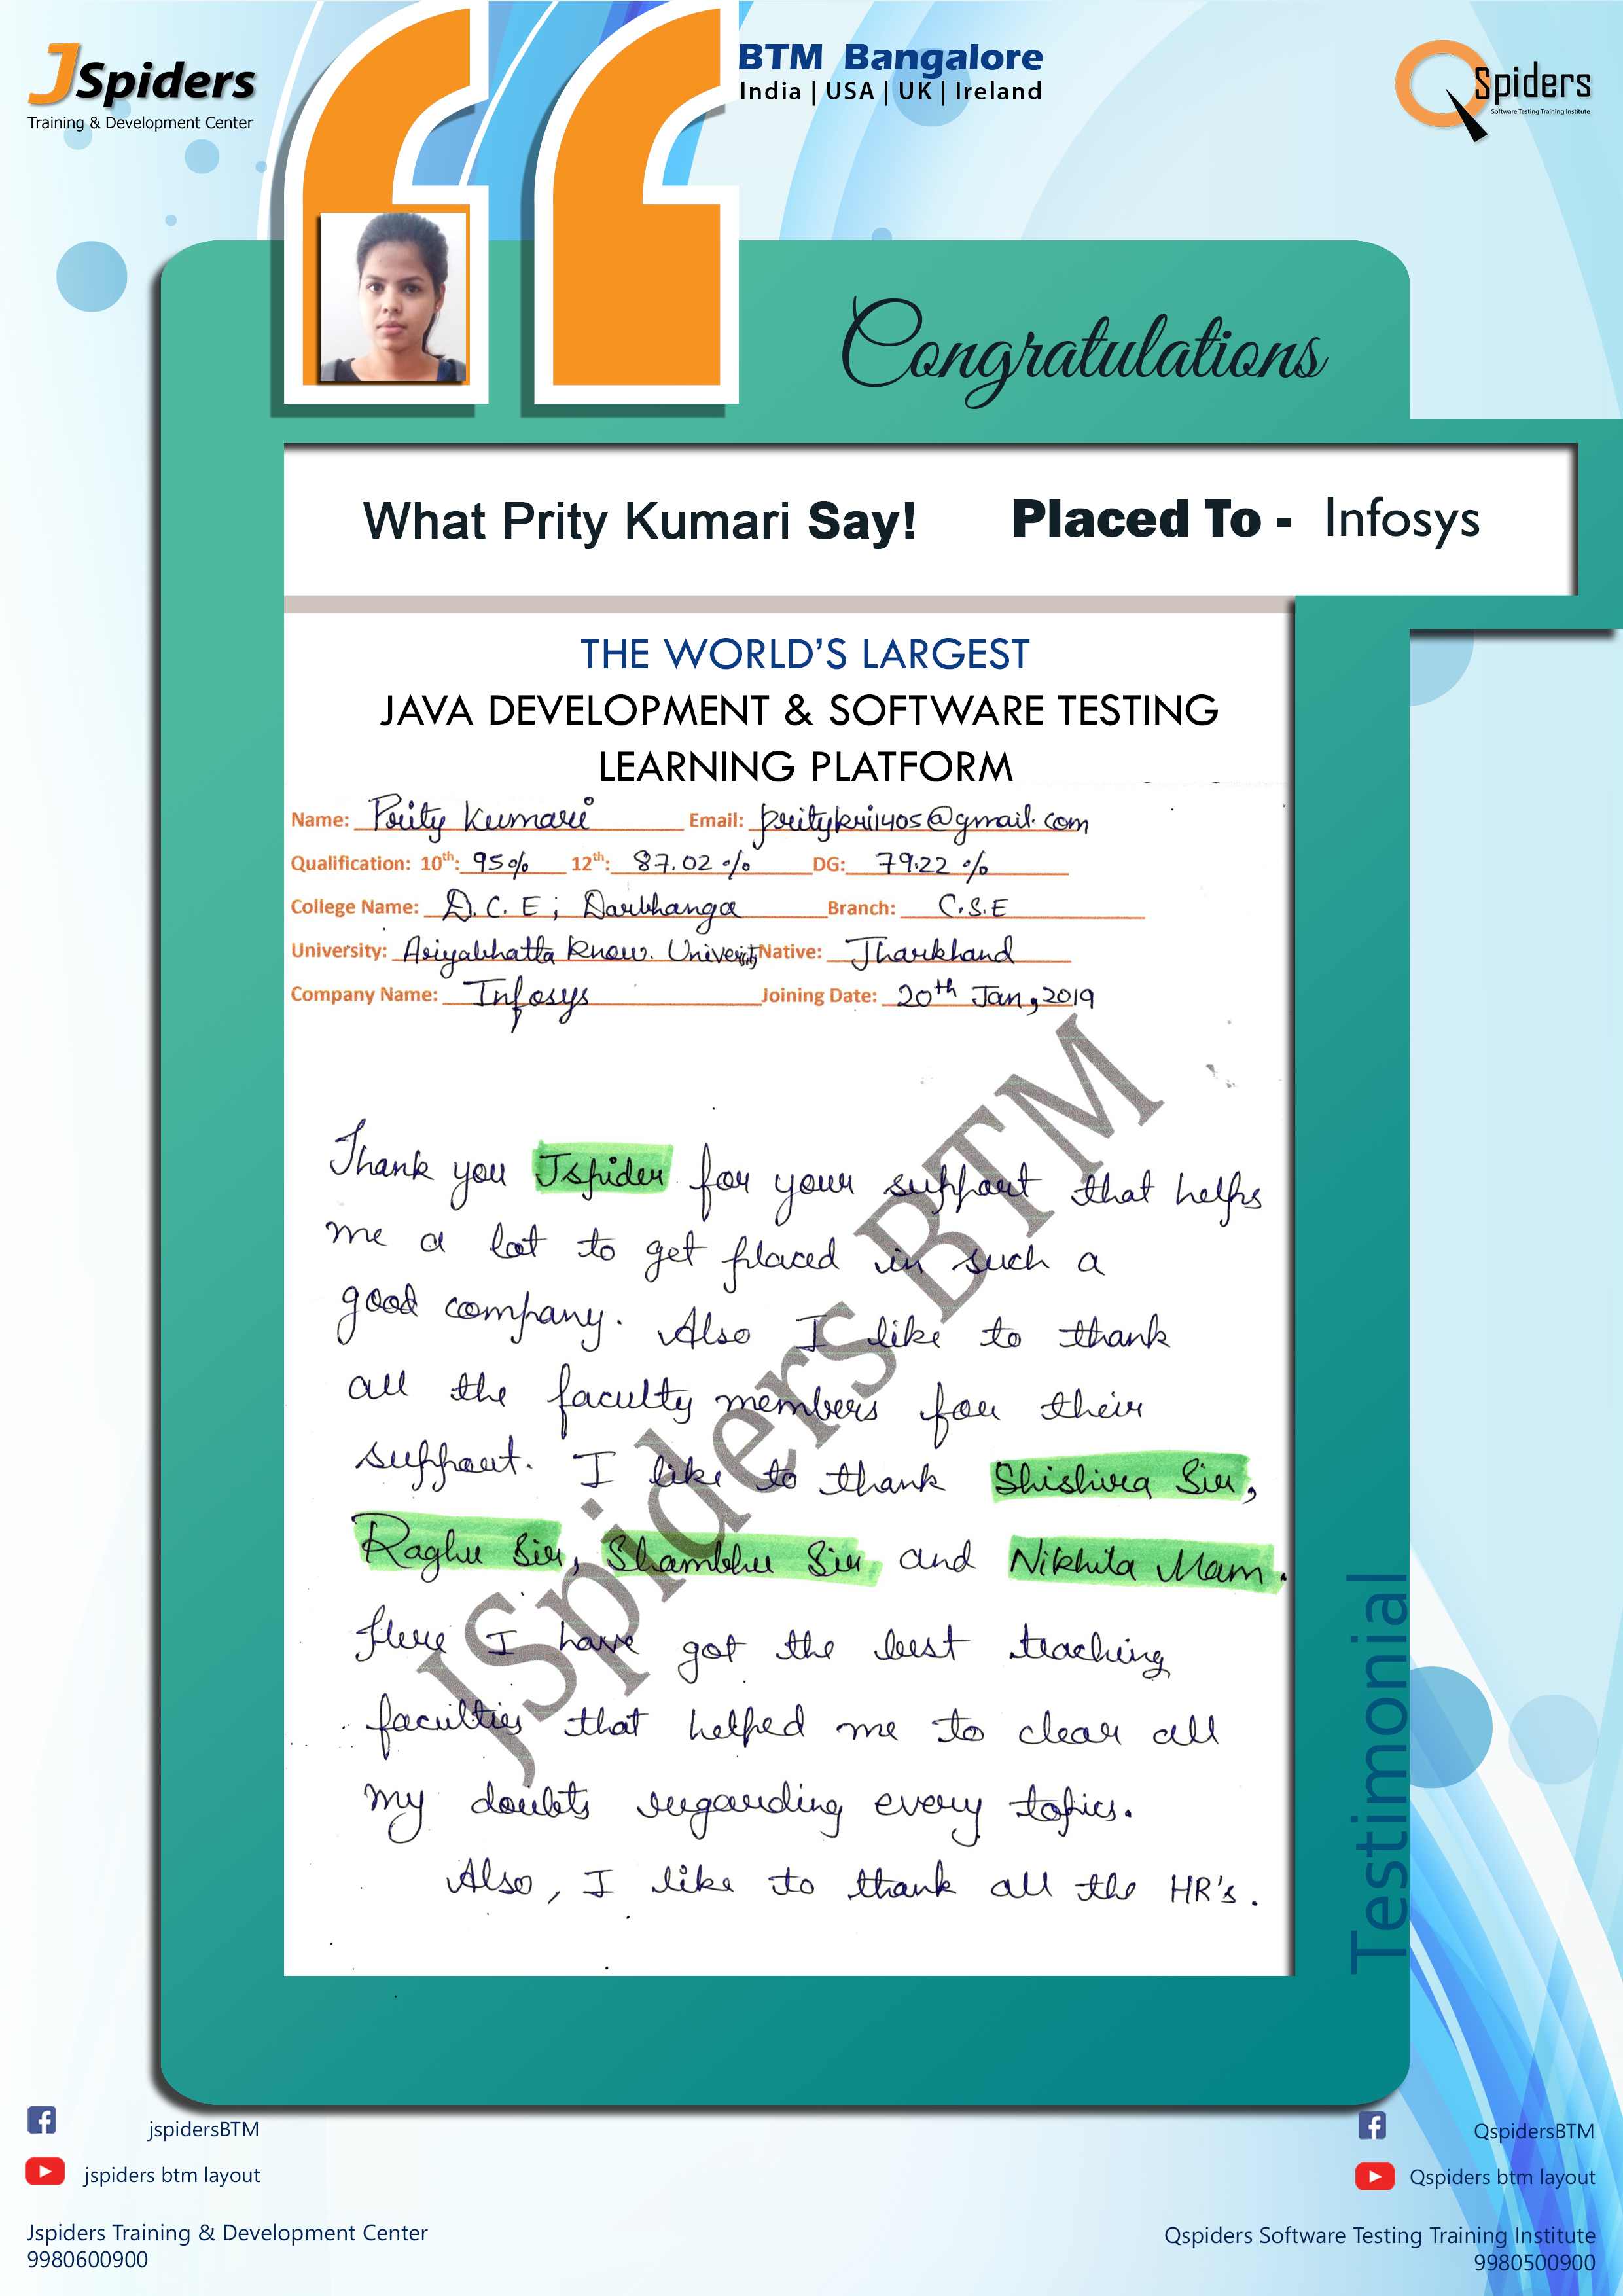 JSpiders
Training & Development Center
BTM Bangalore
India | USA | UK | Ireland
QSpiders
Software Testing Training Institute
Congratulations
What Prity Kumari Say! Placed To - Infosys
THE WORLD'S LARGEST
JAVA DEVELOPMENT & SOFTWARE TESTING
LEARNING PLATFORM
Name: Prity Kumari Email: pritykri1405@gmail.com
Qualification: 10th: 95% 12th: 87.02 % DG: 79.22 %
College Name: D.C.E; Darbhanga Branch: C.S.E
University: Ariyabhatta Know. University Native: Jharkhand
Company Name: Infosys Joining Date: 20th Jan, 2019
Thank you Jspider for your support that helps
me a lot to get placed in such a
good company. Also I like to thank
all the faculty members for their
support. I like to thank Shishira Sir,
Raghu Sir, Shambhu Sir and Nikhita Mam.
Here I have got the best teaching
faculties that helped me to clear all
my doubts regarding every topics.
Also, I like to thank all the HR's.
JSpiders BTM
Testimonial
jspidersBTM
jspiders btm layout
Jspiders Training & Development Center
9980600900
QspidersBTM
Qspiders btm layout
Qspiders Software Testing Training Institute
9980500900